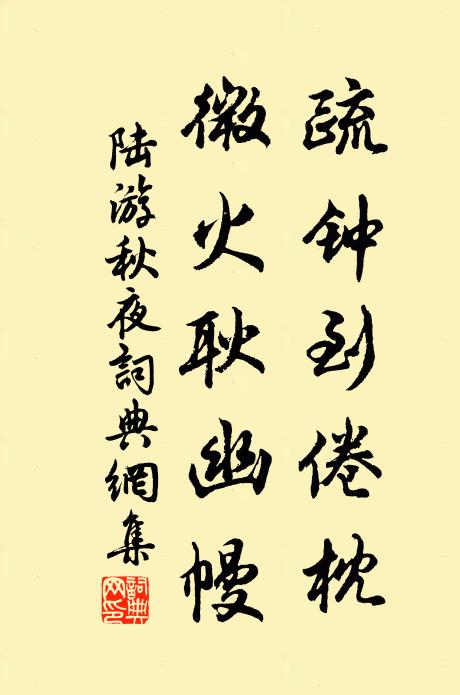 疏钟到倦枕
微火耿幽幔
陆游秋夜詞典網集
詞典网印